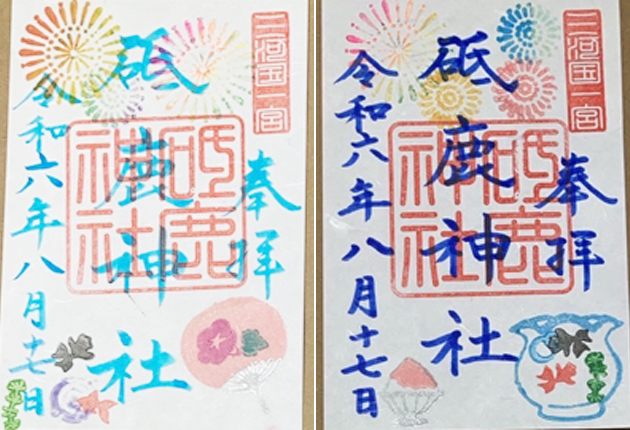 三河国一宮
奉拝
砥鹿神社
砥鹿神社
令和六年八月十七日
三河国一宮
奉拝
砥鹿神社
砥鹿神社
令和六年八月十七日